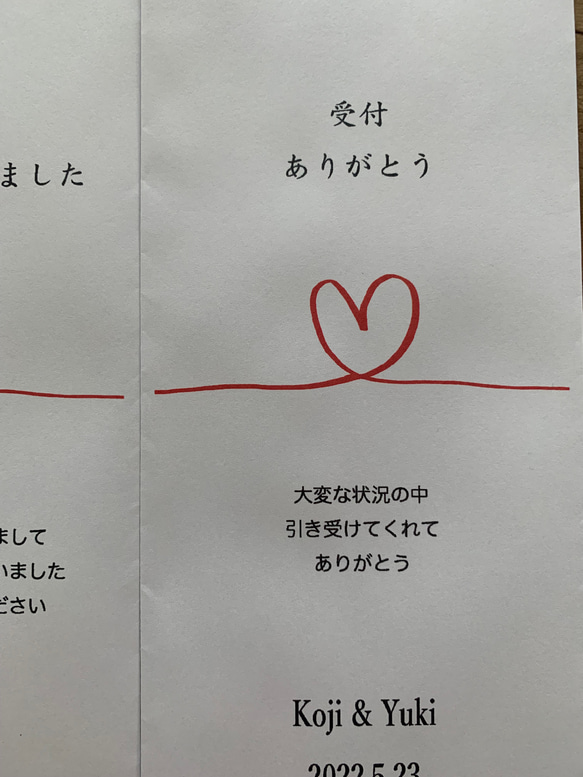 ました
まして
いました
ださい
受付
ありがとう
大変な状況の中
引き受けてくれて
ありがとう
Koji & Yuki
2022.5.23